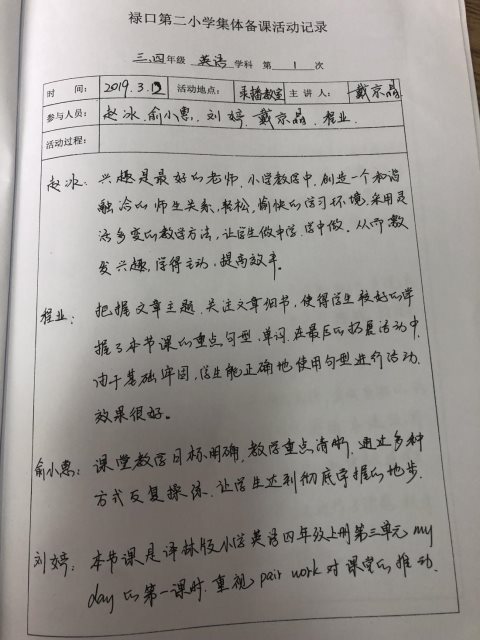 禄口第二小学集体备课活动记录
三、四年级 英语 学科 第 1 次
时 间： 2019.3. 活动地点： 录播教室 主 讲 人： 戴京晶
参与人员： 赵冰、俞小惠、刘婷、戴京晶、程业
活动过程：
赵冰：兴趣是最好的老师，小学教学中，创造一个和谐
融洽的师生关系，轻松，愉快的学习环境，采用灵
活多变的教学方法，让学生做中学，学中做。从而激
发兴趣，学得主动，提高效率。
程业：把握文章主题，关注文章细节，使得学生较好的掌
握了本节课的重点句型、单词，在最后的拓展活动中，
由于基础牢固，学生能正确地使用句型进行活动，
效果很好。
俞小惠：课堂教学目标明确，教学重点清晰，通过多种
方式反复操练，让学生达到彻底掌握的地步。
刘婷：本节课是译林版小学英语四年级上册第三单元 my
day 的第一课时，重视 pair work 对课堂的推动，